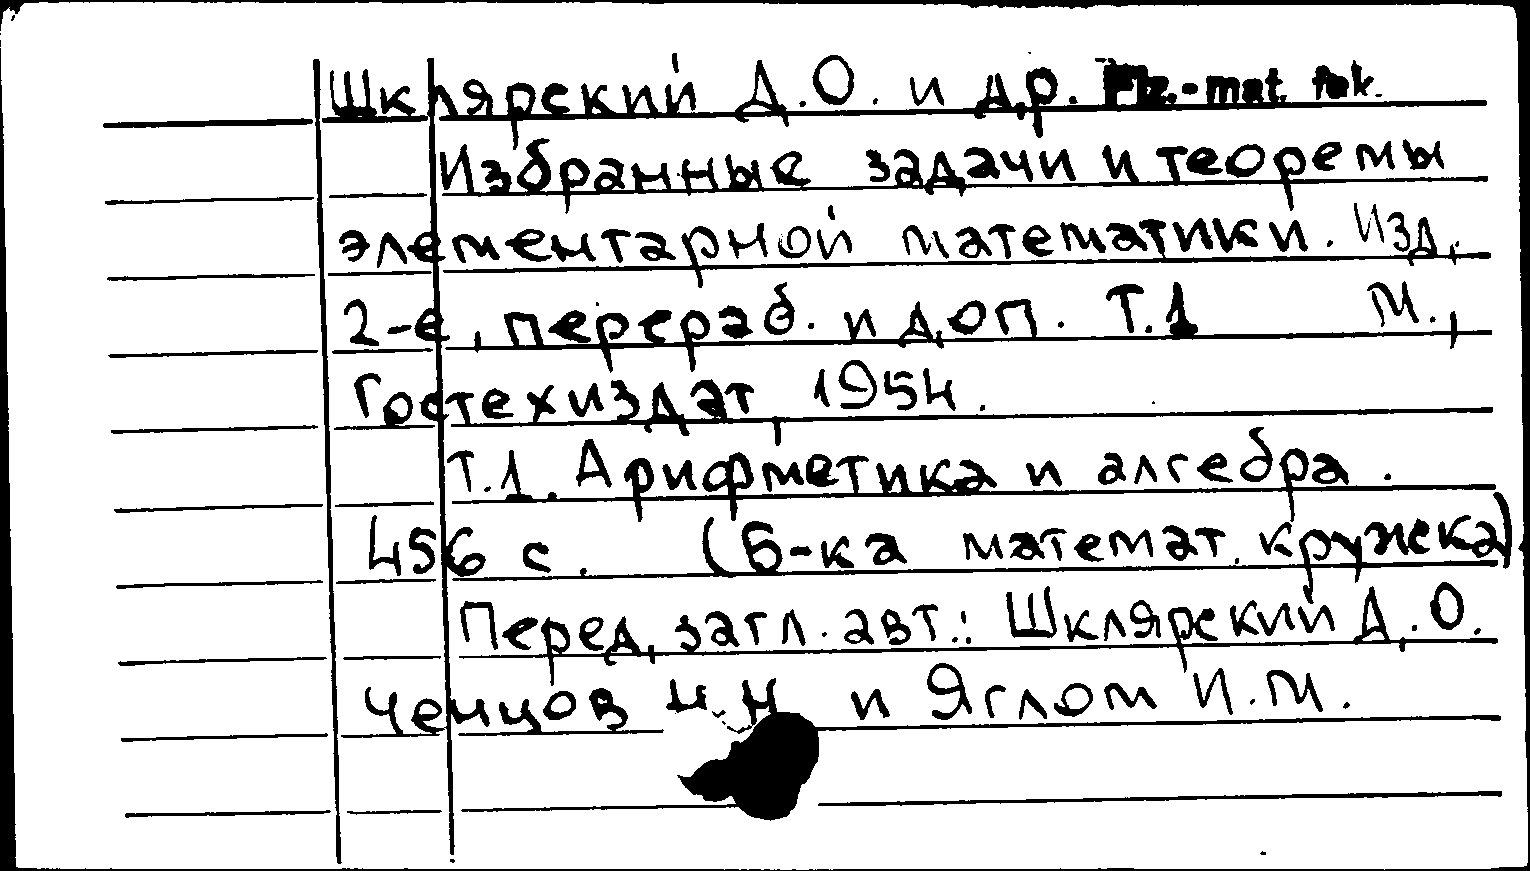 Шклярский Д.О. и др. Fiz.-mat. fak.
Избранные задачи и теоремы
элементарной математики. Изд.
2-е, перераб. и доп. Т.1 М.,
Гостехиздат, 1954.
Т.1. Арифметика и алгебра.
456 с. (Б-ка математ. кружка).
Перед загл. авт.: Шклярский Д.О.
Ченцов Н.Н и Яглом И.М.